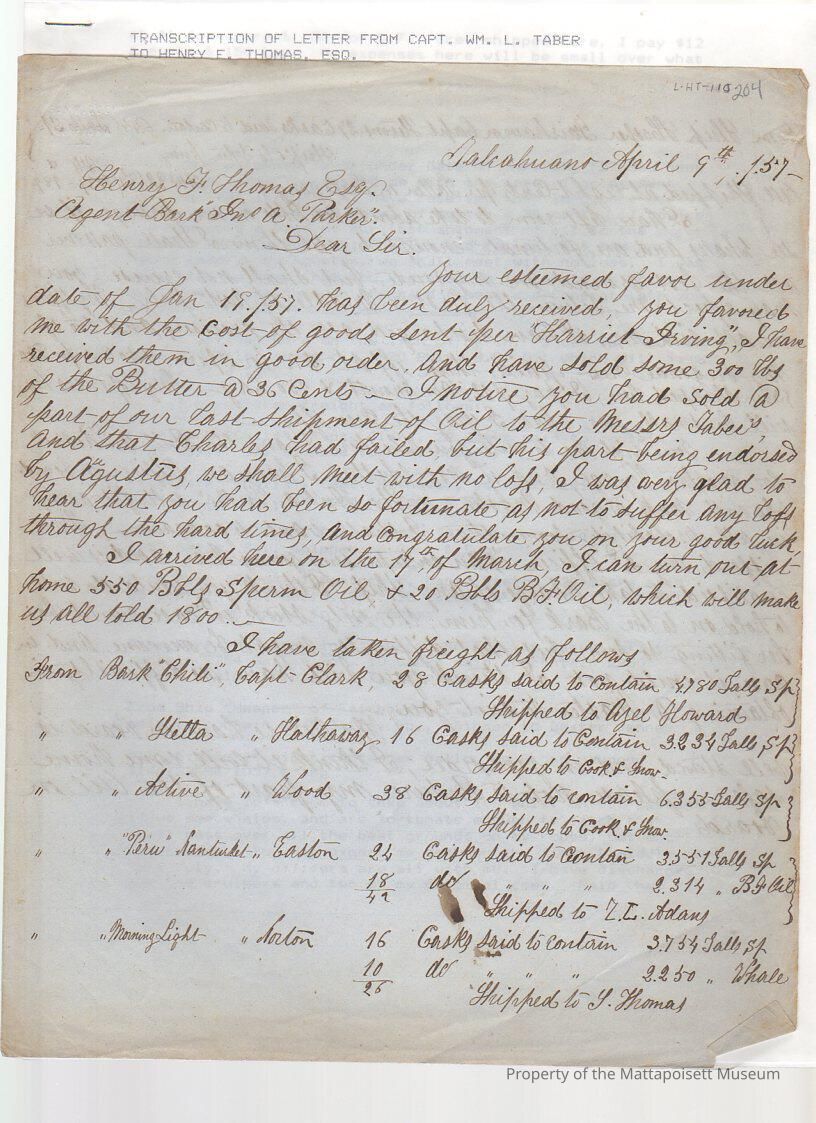 TRANSCRIPTION OF LETTER FROM CAPT. WM. L. TABER
TO HENRY F. THOMAS, ESQ.
L-HT-110 204
Talcahuano April 9th, /57-
Henry F. Thomas Esq.
Agent Bark "Jno A Parker".
Dear Sir.
Your esteemed favor under
date of Jan 19./57. has been duly received, you favored
me with the Cost of goods sent per "Harriet Irving", I have
received them in good order, And have sold some 300 lbs
of the Butter @ 36 Cents - I notice you had sold @
part of our last shipment of Oil to the Messrs Tabers
And that Charles had failed, but his part being endorsed
by Agustus, we shall meet with no loss, I was very glad to
hear that you had been so fortunate as not to suffer any loss
through the hard times, and congratulate you on your good luck,
I arrived here on the 17th of March, I can turn out at
home 550 Bbls Sperm Oil & 20 Bbls B.F. Oil, which will make
us all told 1800.
I have taken freight as follows
From Bark "Chili", Capt Clark, 28 Casks said to Contain 4.780 Galls Sp
Shipped to Azel Howard
" " Stella " Hathaway 16 Casks said to Contain 3.234 Galls, Sp
Shipped to Cook & Snow.
" " Active " Wood 38 Casks said to contain 6.355 Galls Sp
Shipped to Cook & Snow.
" " "Peru" Nantucket " Easton 24 Casks said to Contan 3.551 Galls Sp
18 do " " " 2.314 " B.F Oil
42
Shipped to Z.L. Adams
" " Morning Light " Norton 16 Casks said to contain 3.754 Galls Sp
10 do " " " 2.250 " Whale
26
Shipped to S. Thomas
Property of the Mattapoisett Museum